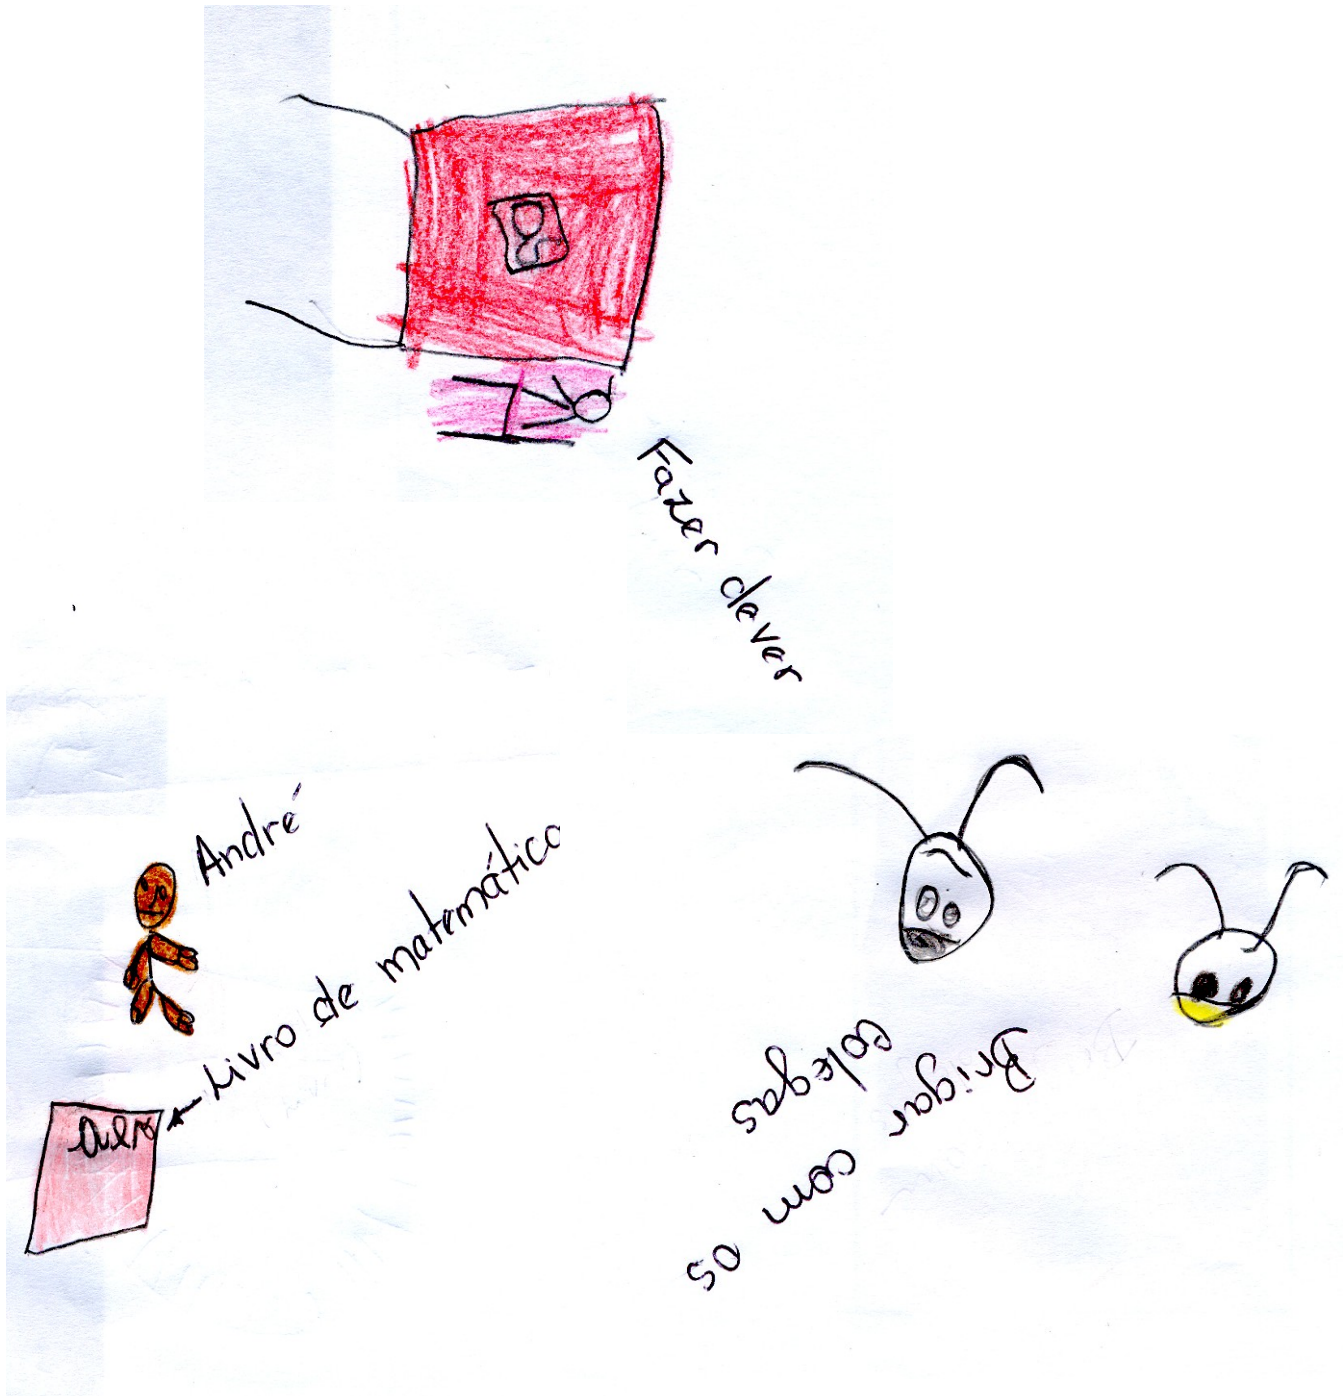 Fazer dever
André
Livro de matemática
Brigar com os
colegas